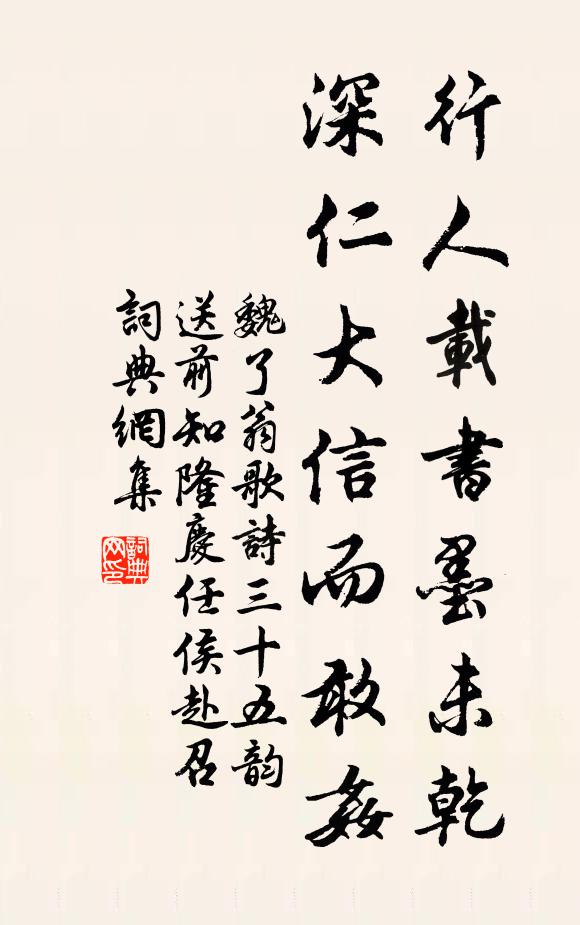 行人載書墨未乾
深仁大信而敢姦
魏了翁歌詩三十五韵
送前知隆慶任侯赴召
詞典網集
詞典
网印